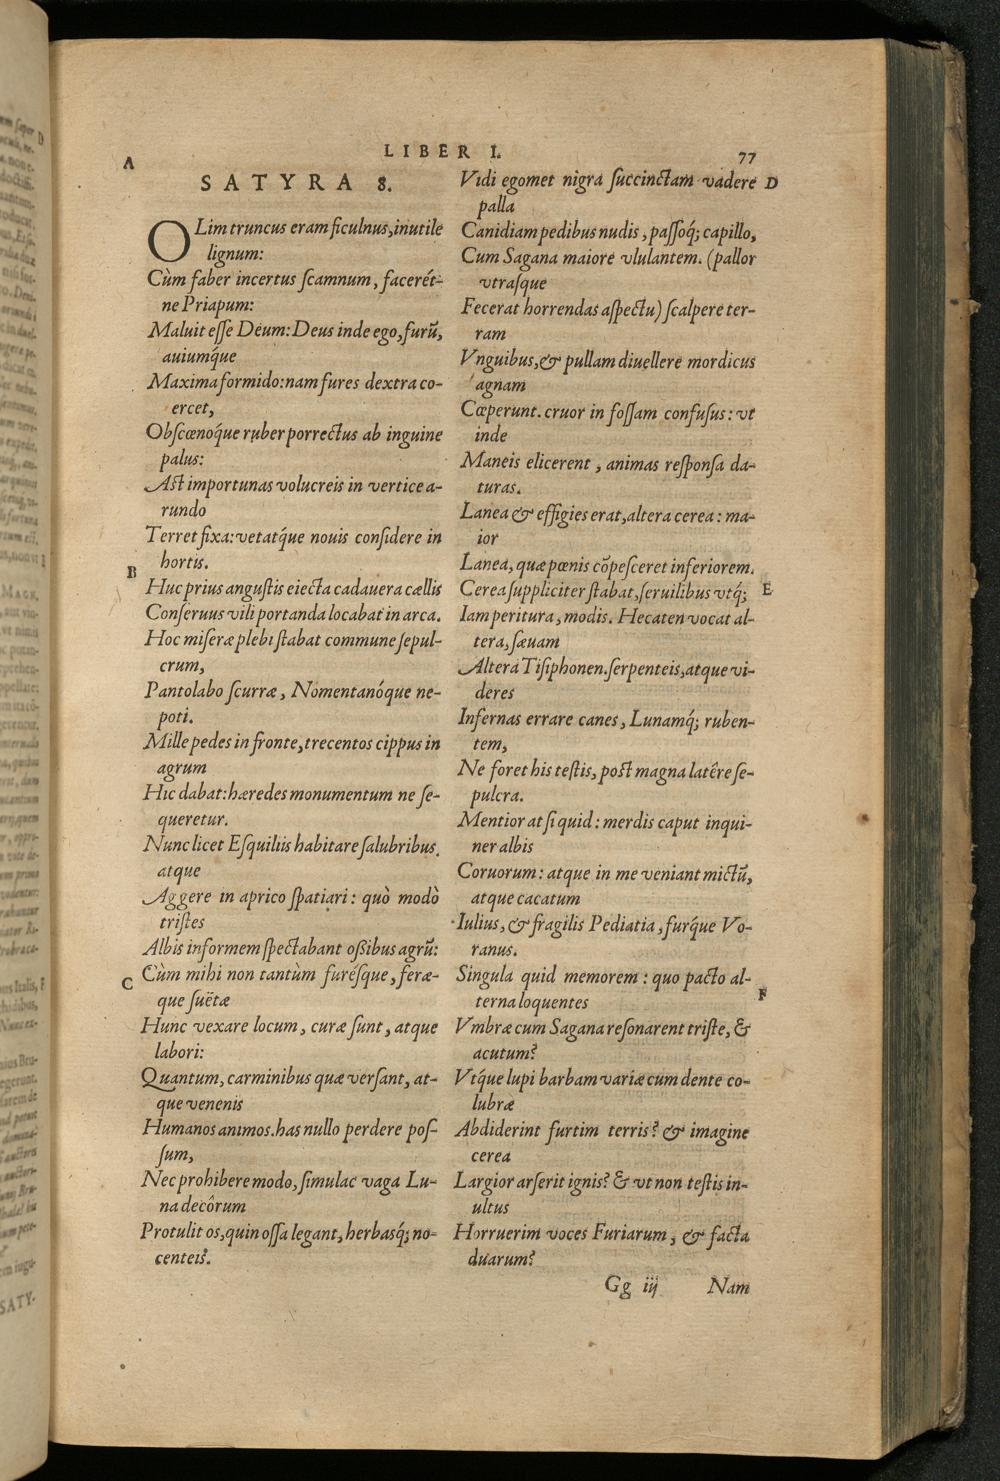 LIBER I. 77
A
SATYRA 8.
OLim truncus eram ficulnus, inutile
lignum:
Cùm faber incertus scamnum, facerét-
ne Priapum:
Maluit esse Deum: Deus inde ego, furū,
auiumq́ue
Maxima formido: nam fures dextra co-
ercet,
Obscœnoq́ue ruber porrectus ab inguine
palus:
Ast importunas volucreis in vertice a-
rundo
Terret fixa: vetatq́ue nouis considere in
hortis.
B
Huc prius angustis eiecta cadauera cællis
Conseruus vili portanda locabat in arca.
Hoc miseræ plebi stabat commune sepul-
crum,
Pantolabo scurræ, Nomentanóque ne-
poti.
Mille pedes in fronte, trecentos cippus in
agrum
Hic dabat: hæredes monumentum ne se-
queretur.
Nunc licet Esquiliis habitare salubribus,
atque
Aggere in aprico spatiari: quò modò
tristes
Albis informem spectabant ossibus agrū:
C
Cùm mihi non tantùm furésque, feræ-
que suëtæ
Hunc vexare locum, curæ sunt, atque
labori:
Quantum, carminibus quæ versant, at-
que venenis
Humanos animos. has nullo perdere pos-
sum,
Nec prohibere modo, simulac vaga Lu-
na decôrum
Protulit os, quin ossa legant, herbasq́; no-
centeis.
Vidi egomet nigra succinctam vadere D
palla
Canidiam pedibus nudis, passoq́; capillo,
Cum Sagana maiore vlulantem. (pallor
vtrasque
Fecerat horrendas aspectu) scalpere ter-
ram
Vnguibus, & pullam diuellere mordicus
agnam
Cœperunt. cruor in fossam confusus: vt
inde
Maneis elicerent, animas responsa da-
turas.
Lanea & effigies erat, altera cerea: ma-
ior
Lanea, quæ pœnis cōpesceret inferiorem.
Cerea suppliciter stabat, seruilibus vtq́; E
Iam peritura, modis. Hecaten vocat al-
tera, sæuam
Altera Tisiphonen. serpenteis, atque vi-
deres
Infernas errare canes, Lunamq́; ruben-
tem,
Ne foret his testis, post magna latêre se-
pulcra.
Mentior at si quid: merdis caput inqui-
ner albis
Coruorum: atque in me veniant mictū,
atque cacatum
Iulius, & fragilis Pediatia, furq́ue Vo-
ranus.
Singula quid memorem: quo pacto al-
terna loquentes
F
Vmbræ cum Sagana resonarent triste, &
acutum?
Vtq́ue lupi barbam variæ cum dente co-
lubræ
Abdiderint furtim terris? & imagine
cerea
Largior arserit ignis? & vt non testis in-
ultus
Horruerim voces Furiarum, & facta
duarum?
Gg iij Nam
SATY-